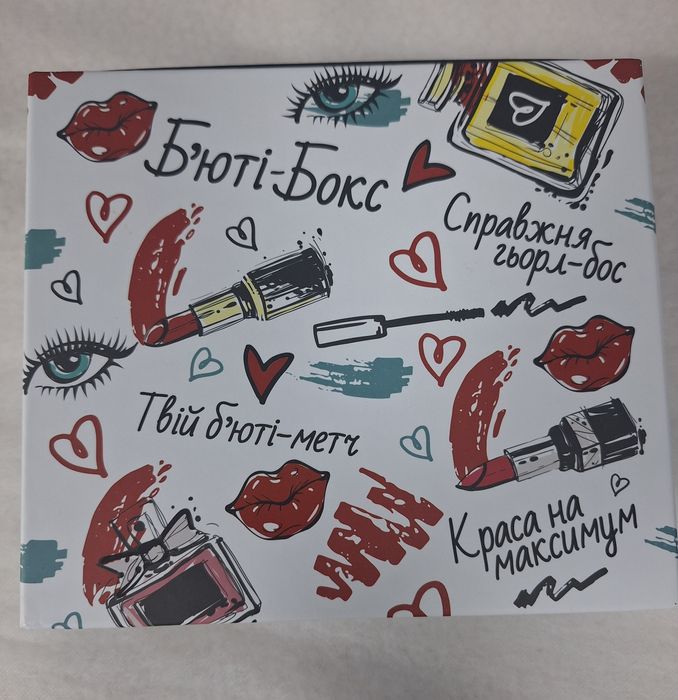 Б'юті-Бокс
Справжня
гьорл-бос
Твій б'юті-метч
Краса на
максимум